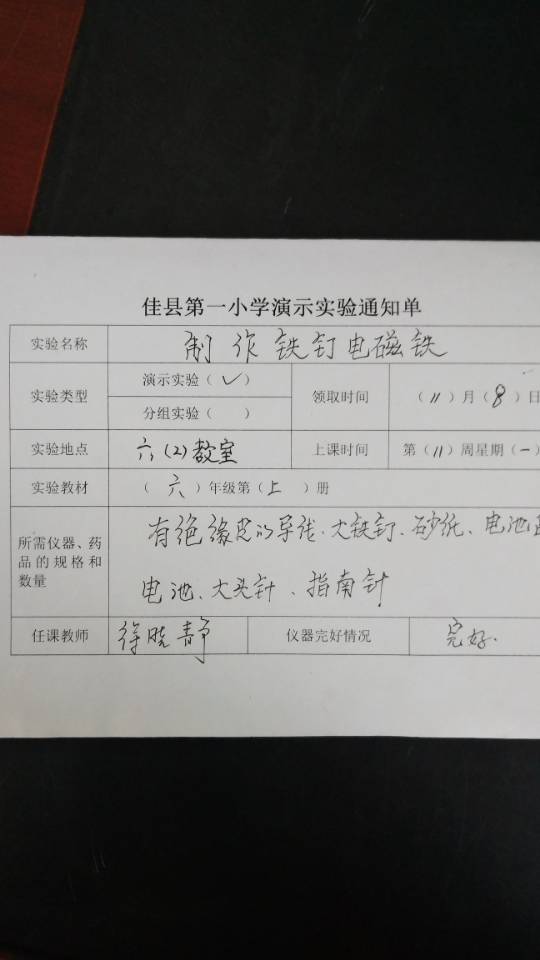 佳县第一小学演示实验通知单
实验名称 制作铁钉电磁铁
实验类型 演示实验（✓） 领取时间 （11）月（8）日
分组实验（ ）
实验地点 六（2）教室 上课时间 第（11）周星期（一）
实验教材 （六）年级第（上）册
所需仪器、药品的规格和数量
有绝缘皮的导线、大铁钉、砂纸、电池
电池、大头针、指南针
任课教师 徐晓静 仪器完好情况 完好.